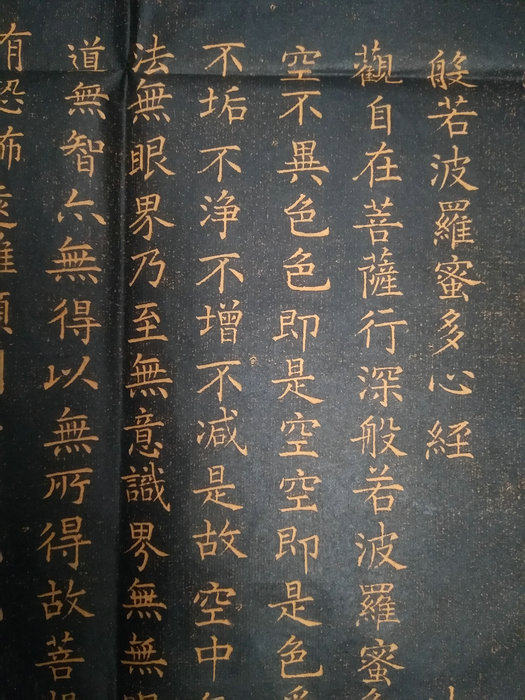 般若波羅蜜多心経
觀自在菩薩行深般若波羅蜜多
空不異色色即是空空即是色受
不垢不浄不增不减是故空中無
法無眼界乃至無意識界無無明
道無智亦無得以無所得故菩提
有恐怖遠離顛倒